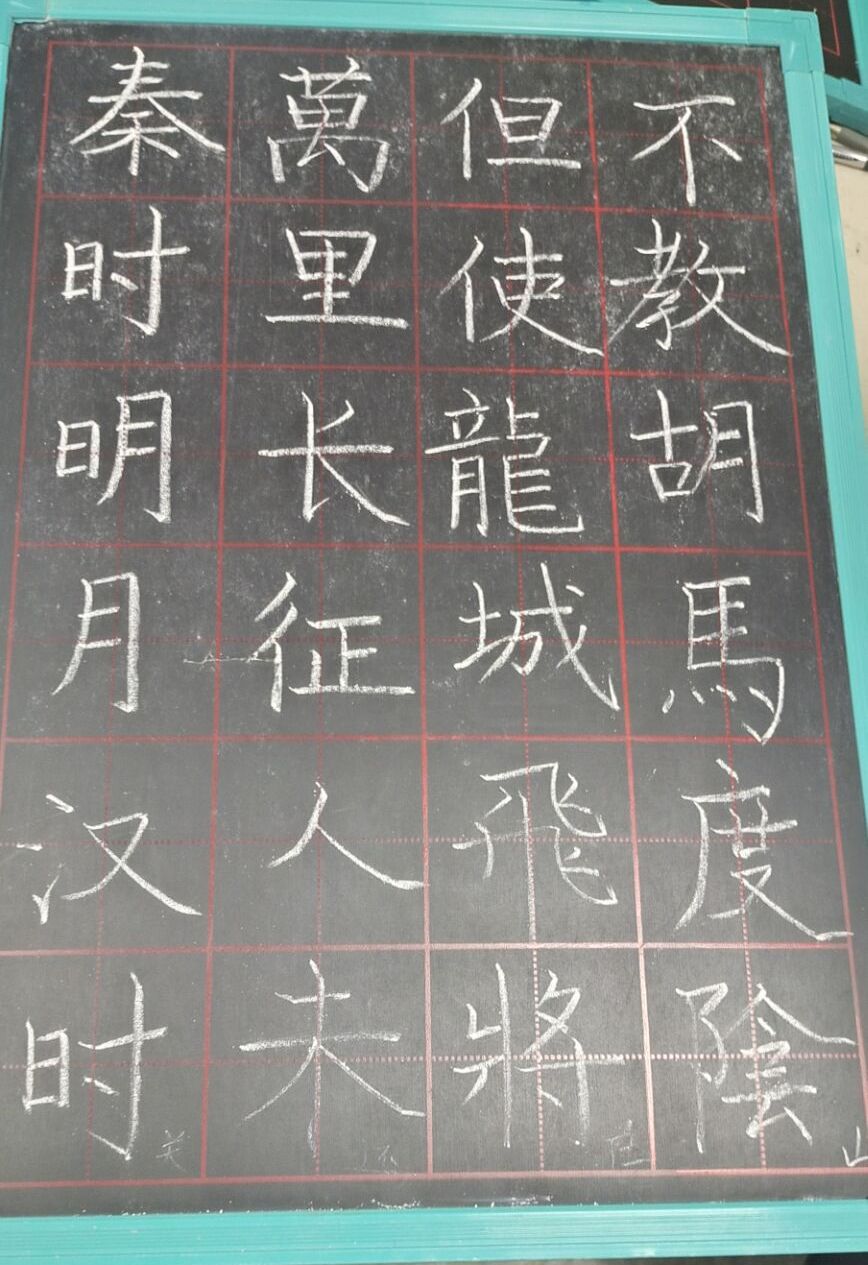 秦时明月汉时关
萬里长征人未还
但使龍城飛將在
不教胡馬度陰山